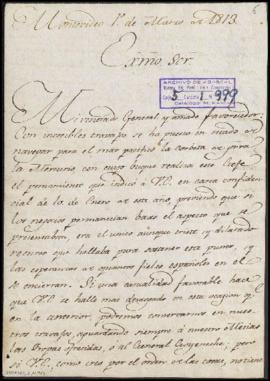 Montevideo 1º de Marzo de 1813.
6
Exmo. Sor.
ARCHIVO
5 1 999
Mi venerado General y amado favorecedor:
Con increibles trabajos se ha puesto en estado de
navegar para el mar pacifico la corbeta de guerra
Mercurio, con cuyo buque realiza este Gefe
el pensamiento que indicó á V.E. en carta confiden-
cial de 10 de Enero de este año, previendo que si
los negocios permanecian bajo el aspecto que se
presentaban, era el unico aunque triste y dilatado
recurso que hallaba para sostener este punto, y
las esperanzas de quantos fieles españoles en el
se encierran. Si una casualidad favorable hace
que V.E. se halle mas desocupado en esta ocasion que
en la anterior, podremos conservarnos en nues-
tros trabajos, aguardando siempre á nuestro Mesias
las tropas ofrecidas, ó al General Goyeneche; pero
si V.E., como creo por el orden de las cosas, no tiene